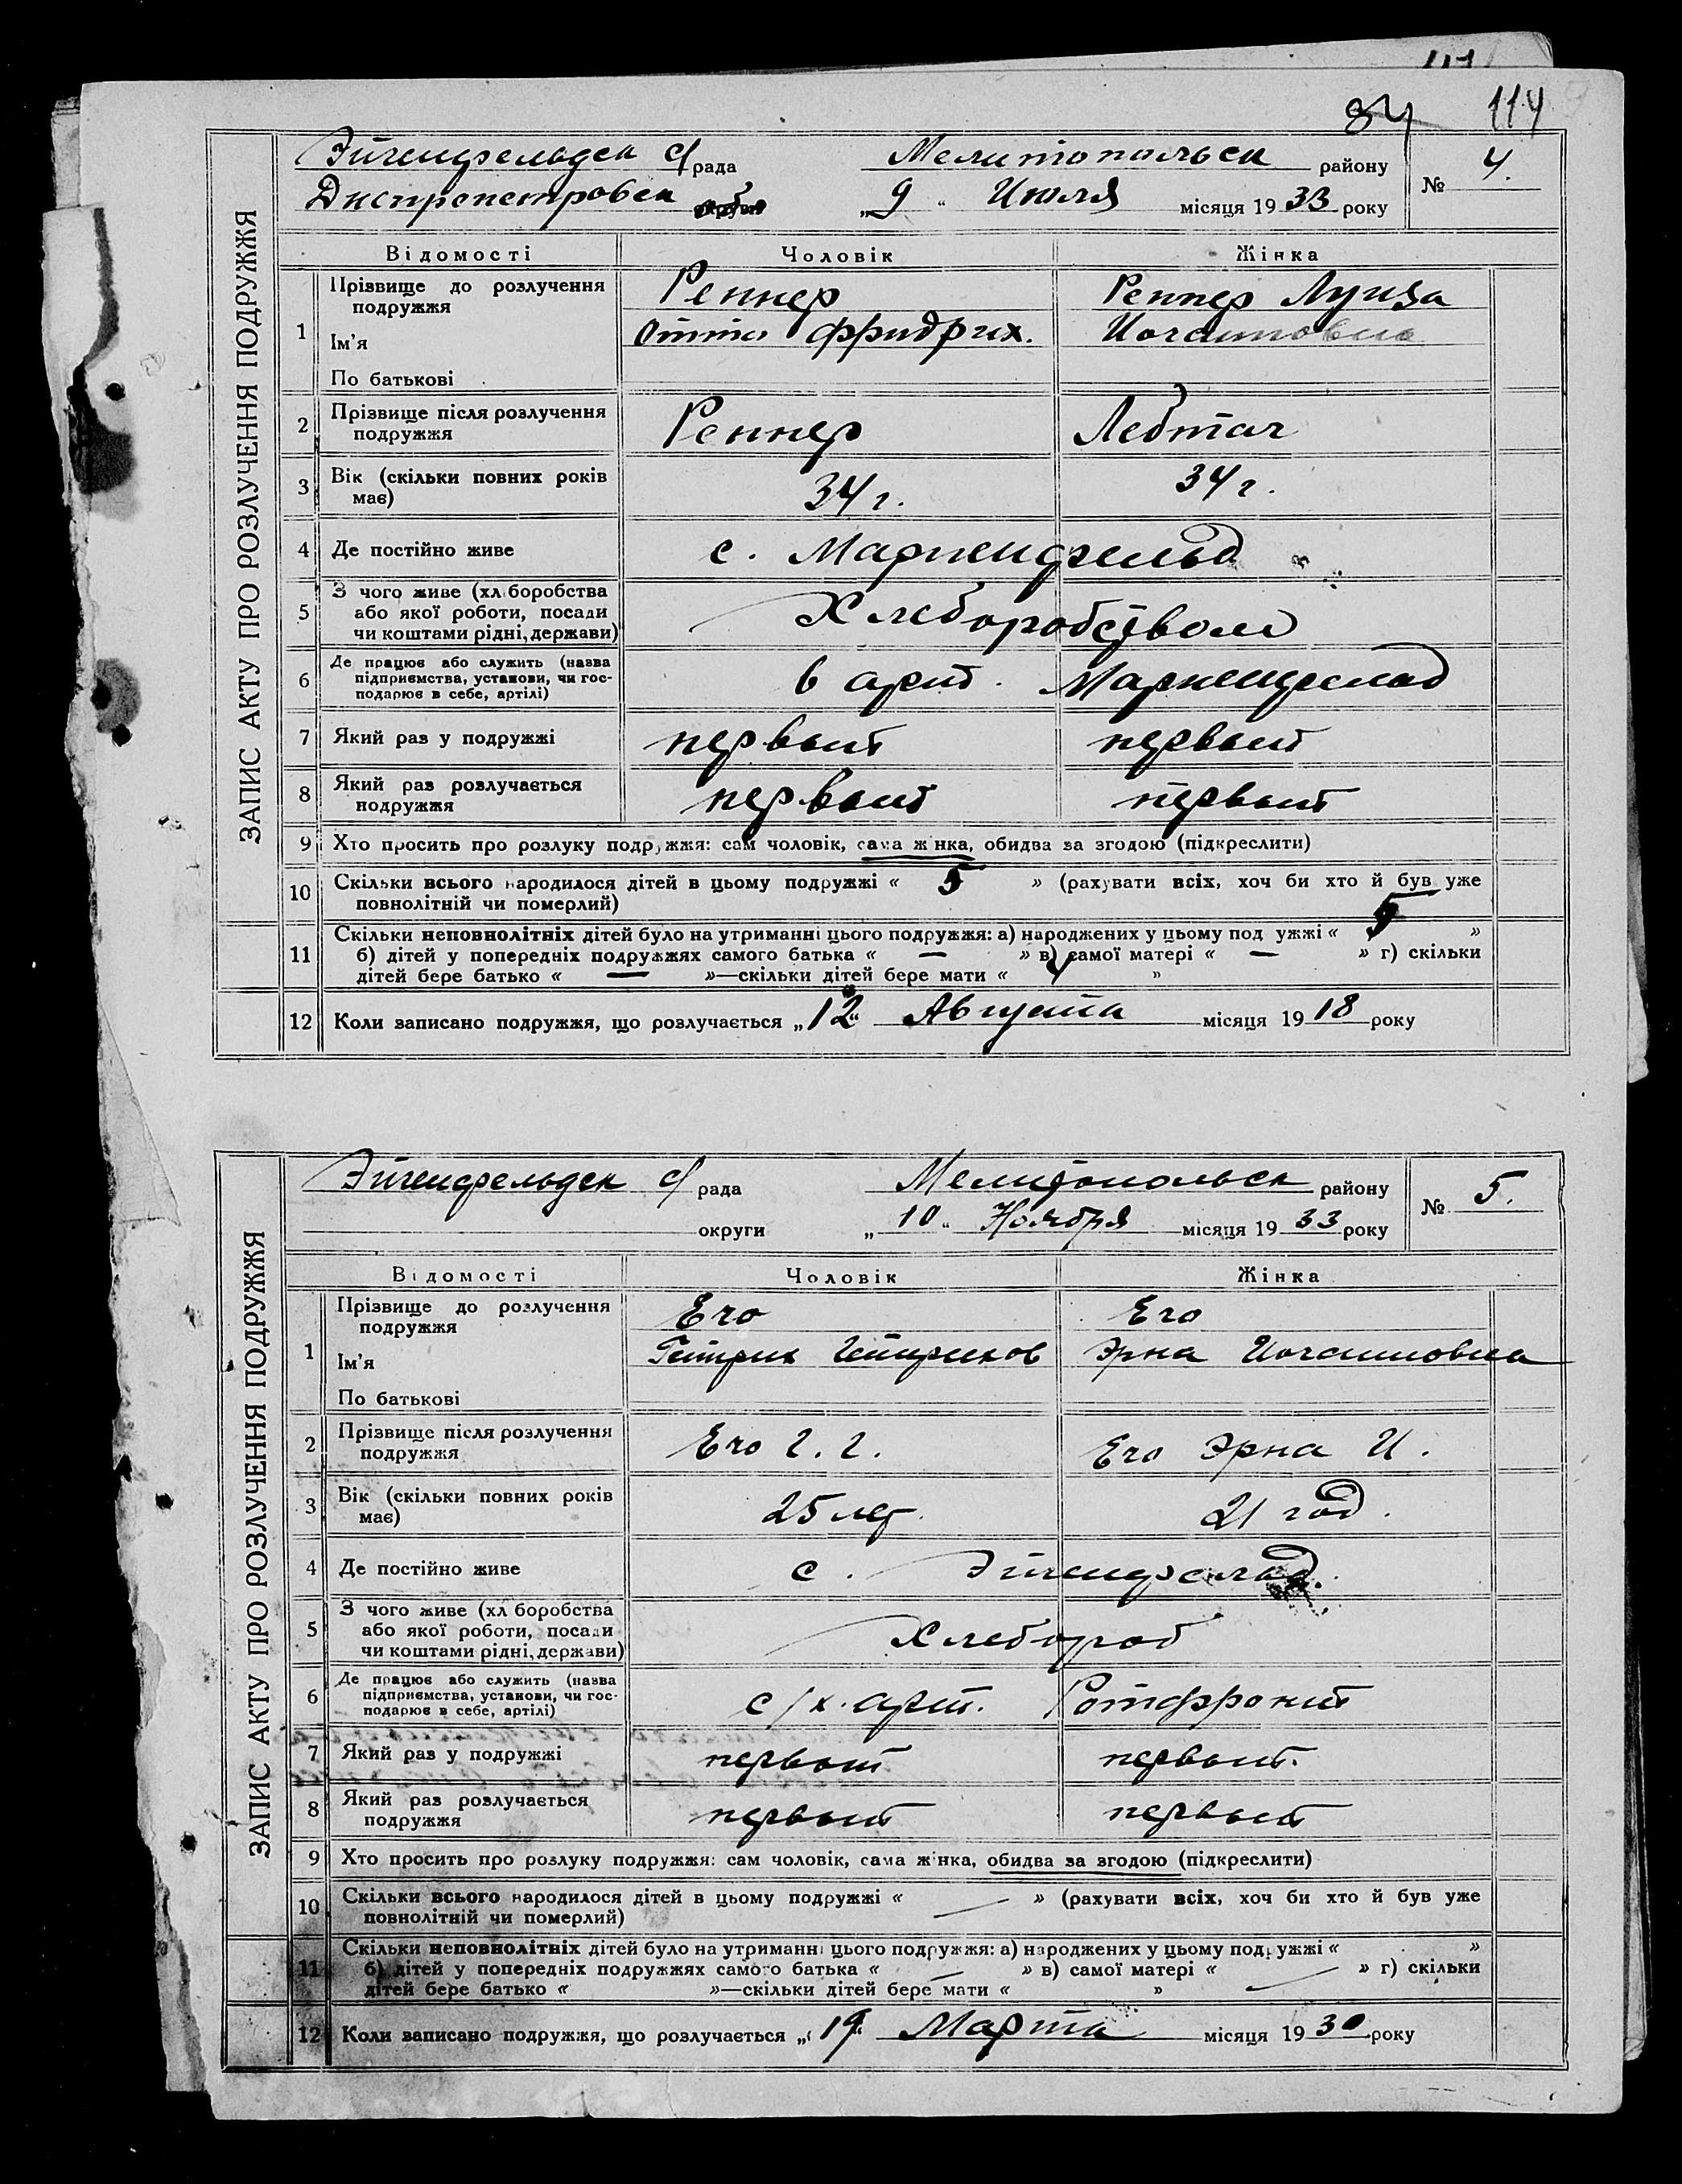 84 114
ЗАПИС АКТУ ПРО РОЗЛУЧЕННЯ ПОДРУЖЖЯ
Эйгенфельдск с/рада Мелитопольск району № 4.
Днепропетровск „9“ Июля місяця 1933 року
Відомості Чоловік Жінка
1 Прізвище до розлучення Реннер Реннер Луиза
подружжя
Ім’я Отто Фридрих. Иогановна
По батькові
2 Прізвище після розлучення Реннер Лебтаг
подружжя
3 Вік (скільки повних років 34 г. 34 г.
має)
4 Де постійно живе с. Мариенфельд
5 З чого живе (хл боробства Хлеборобством
або якої роботи, посади
чи коштами рідні, держави)
6 Де працює або служить (назва в арт. Мариенфельд
підприємства, установи, чи гос-
подарює в себе, артілі)
7 Який раз у подружжі первый первый
8 Який раз розлучається первый первый
подружжя
9 Хто просить про розлуку подружжя: сам чоловік, сама жінка, обидва за згодою (підкреслити)
10 Скільки всього народилося дітей в цьому подружжі « 5 » (рахувати всіх, хоч би хто й був уже
повнолітній чи померлий)
11 Скільки неповнолітніх дітей було на утриманні цього подружжя: а) народжених у цьому под ужжі « 5 »
б) дітей у попередніх подружжях самого батька « — » в) самої матері « — » г) скільки
дітей бере батько « — »—скільки дітей бере мати « »
12 Коли записано подружжя, що розлучається „12“ Августа місяця 1918 року
ЗАПИС АКТУ ПРО РОЗЛУЧЕННЯ ПОДРУЖЖЯ
Эйгенфельдск с/рада Мелитопольск району № 5.
округи „10“ Ноября місяця 1933 року
Відомості Чоловік Жінка
1 Прізвище до розлучення Его Его
подружжя
Ім’я Эрна Иогановна
По батькові
2 Прізвище після розлучення Его Г. Г. Его Эрна И.
подружжя
3 Вік (скільки повних років 25 лет 21 год.
має)
4 Де постійно живе с. Эйгенфельд.
5 З чого живе (хл боробства Хлебороб
або якої роботи, посади
чи коштами рідні, держави)
6 Де працює або служить (назва с/х. арт. Ротфронт
підприємства, установи, чи гос-
подарює в себе, артілі)
7 Який раз у подружжі первый первый.
8 Який раз розлучається первый первый
подружжя
9 Хто просить про розлуку подружжя: сам чоловік, сама жінка, обидва за згодою (підкреслити)
10 Скільки всього народилося дітей в цьому подружжі « — » (рахувати всіх, хоч би хто й був уже
повнолітній чи померлий)
11 Скільки неповнолітніх дітей було на утриманні цього подружжя: а) народжених у цьому подружжі « »
б) дітей у попередніх подружжях самого батька « — » в) самої матері « — » г) скільки
дітей бере батько « »—скільки дітей бере мати « »
12 Коли записано подружжя, що розлучається „19“ Марта місяця 1930 року